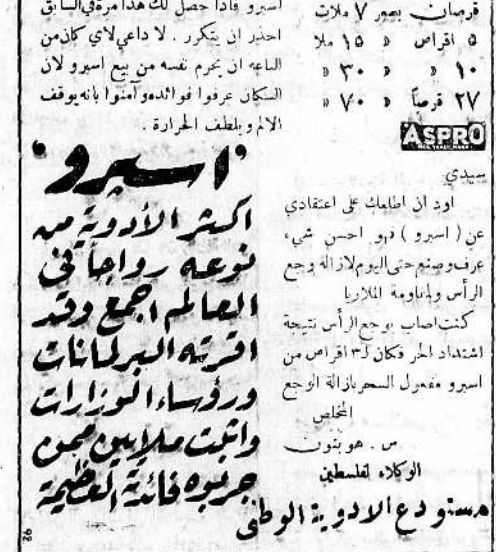 قرصان بسعر ٧ ملات
٥ اقراص » ١٥ ملا
١٠ » » ٣٠ »
٢٧ قرصاً » ٧٠ »
ASPRO
سيدي
اود ان اطلعك على اعتقادي
عن ( اسبرو ) فهو احسن شيء
عرف وصنع حتى اليوم لازالة وجع
الرأس ولمقاومة الملاريا
كنت اصاب بوجع الرأس نتيجة
اشتداد الحر فكان لـ٣ اقراص من
اسبرو مفعول السحر بازالة الوجع
المخلص
س . هوبتون
الوكلاء لفلسطين
مستودع الادوية الوطني
اسبرو فاذا حصل لك هذا مرة في السابق
احذر ان يتكرر . لا داعي لاي كان من
الباعه ان يحرم نفسه من بيع اسبرو لان
السكان عرفوا فوائده وآمنوا بانه يوقف
الالم ويلطف الحرارة .
'اسبرو'
اكثر الأدوية من
نوعه رواجاً في
العالم اجمع وقد
اقرته البرلمانات
ورؤساء الوزارات
واثبت ملايين ممن
جربوه فائدته العظيمة